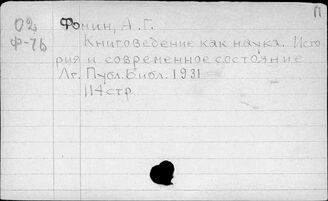 П
02 Фомин, А.Г.
Ф-76 Книговедение как наука. Исто
рия и современное состояние
Лг. Публ. Библ. 1931
114 стр